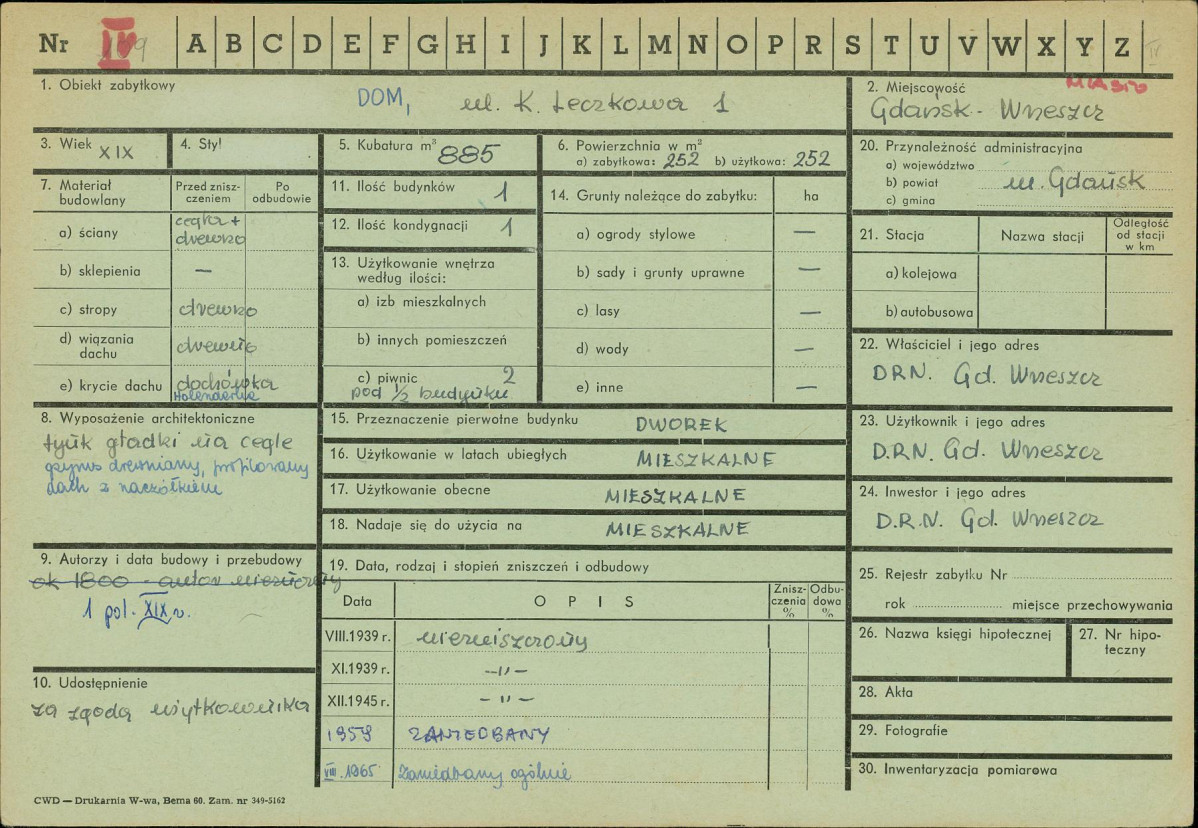 Nr IV A B C D E F G H I J K L M N O P R S T U V W X Y Z IV
1. Obiekt zabytkowy
DOM, ul. K. Leczkowa 1
MIASTO
2. Miejscowość
Gdańsk - Wrzeszcz
3. Wiek XIX
4. Styl
5. Kubatura m³ 885
6. Powierzchnia w m²
a) zabytkowa: 252 b) użytkowa: 252
20. Przynależność administracyjna
a) województwo
b) powiat m. Gdańsk
c) gmina
7. Materiał budowlany
Przed zniszczeniem
Po odbudowie
a) ściany cegła + drewno
b) sklepienia —
c) stropy drewno
d) wiązania dachu drewno
e) krycie dachu dachówka
Holenderka
11. Ilość budynków 1
12. Ilość kondygnacji 1
13. Użytkowanie wnętrza
według ilości:
a) izb mieszkalnych
b) innych pomieszczeń
c) piwnic 2
pod 1/2 budynku
14. Grunty należące do zabytku: ha
a) ogrody stylowe —
b) sady i grunty uprawne —
c) lasy —
d) wody —
e) inne —
21. Stacja
Nazwa stacji
Odległość od stacji w km
a) kolejowa
b) autobusowa
22. Właściciel i jego adres
DRN. Gd. Wrzeszcz
8. Wyposażenie architektoniczne
tynk gładki na cegle
gzyms drewniany, profilowany
dach z naczółkiem
15. Przeznaczenie pierwotne budynku DWOREK
16. Użytkowanie w latach ubiegłych MIESZKALNE
17. Użytkowanie obecne MIESZKALNE
18. Nadaje się do użycia na MIESZKALNE
23. Użytkownik i jego adres
D.R.N. Gd. Wrzeszcz
24. Inwestor i jego adres
D.R.N. Gd. Wrzeszcz
9. Autorzy i data budowy i przebudowy
ok 1800 - autor nieznany
1 poł. XIX w.
19. Data, rodzaj i stopień zniszczeń i odbudowy
Data
OPIS
Zniszczenia %
Odbudowa %
VIII.1939 r. niezniszczony
XI.1939 r. —"—
XII.1945 r. —"—
1959 ZANIEDBANY
VIII.1965 Zaniedbany ogólnie
25. Rejestr zabytku Nr
rok miejsce przechowywania
26. Nazwa księgi hipotecznej
27. Nr hipoteczny
10. Udostępnienie
za zgodą użytkownika
28. Akta
29. Fotografie
30. Inwentaryzacja pomiarowa
CWD — Drukarnia W-wa, Bema 60. Zam. nr 349-5162